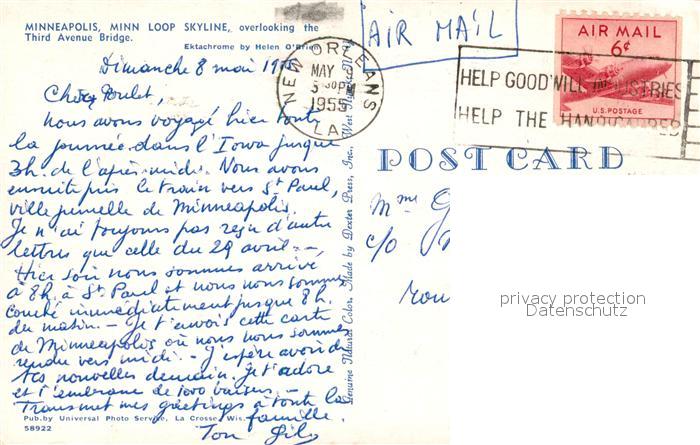 MINNEAPOLIS, MINN LOOP SKYLINE, overlooking the
Third Avenue Bridge.
Ektachrome by Helen O'Brien
Dimanche 8 mai 1955
Poulet,
nous avons voyagé hier toute
la journée dans l'Iowa jusque
3h. de l'après-midi. Nous avons
ensuite pris le train vers St Paul,
ville jumelle de Minneapolis.
Je n'ai toujours pas reçu d'autre
lettres que celle du 29 avril -,
Hier soir nous sommes arrivé
à 8h. à St Paul et nous nous sommes
couché immédiatement jusque 8h.
du matin. - Je t'envois cette carte
de Minneapolis où nous nous sommes
rendu vers midi. - J'espère avoir de
tes nouvelles demain. Je t'adore
et t'embrasse de 1000 baisers. -
Transmet mes greetings à toute la
famille.
Ton Gil
Pub. by Universal Photo Service, La Crosse, Wis.
58922
Genuine Natural Color, Made by Dexter Press, Inc., West Nyack, N.Y.
AIR MAIL
NEW ORLEANS
MAY
1955
LA
HELP GOODWILL INDUSTRIES
HELP THE HANDICAPPED
AIR MAIL
6¢
U.S. POSTAGE
POST CARD
Mme G
c/o
rou
privacy protection
Datenschutz